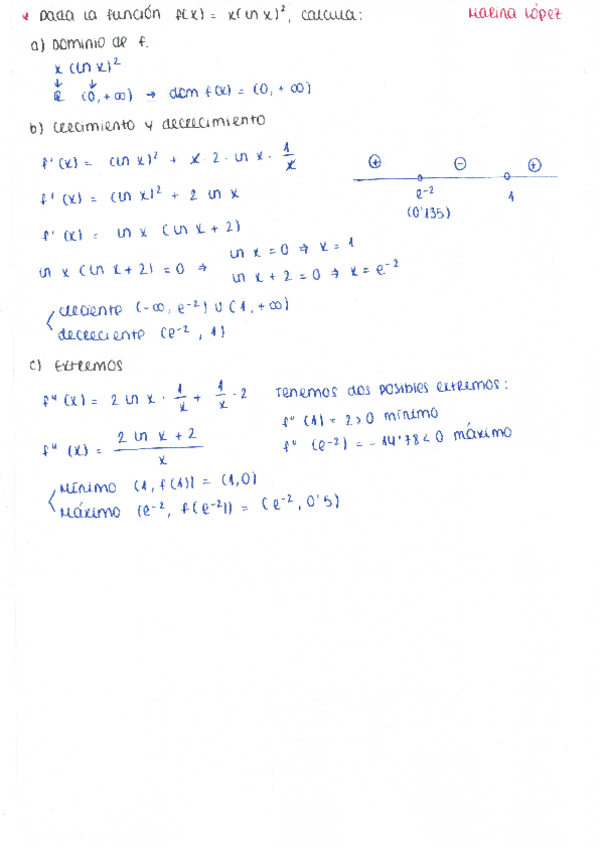 * Dada la función f(x) = x(ln x)², calcula:
Marina López
a) Dominio de f.
x (ln x)²
↓ ↓
ℝ (0, +∞) → dom f(x) = (0, +∞)
b) Crecimiento y decrecimiento
f'(x) = (ln x)² + x · 2 · ln x · 1/x
f'(x) = (ln x)² + 2 ln x
f'(x) = ln x (ln x + 2)
⊕ ⊖ ⊕
e⁻² 1
(0'135)
ln x (ln x + 2) = 0 ⇒ ln x = 0 ⇒ x = 1
ln x + 2 = 0 ⇒ x = e⁻²
creciente (-∞, e⁻²) ∪ (1, +∞)
decreciente (e⁻², 1)
c) Extremos
f''(x) = 2 ln x · 1/x + 1/x · 2
f''(x) = (2 ln x + 2)/x
Tenemos dos posibles extremos:
f''(1) = 2 > 0 mínimo
f''(e⁻²) = -14'78 < 0 máximo
Mínimo (1, f(1)) = (1,0)
Máximo (e⁻², f(e⁻²)) = (e⁻², 0'5)